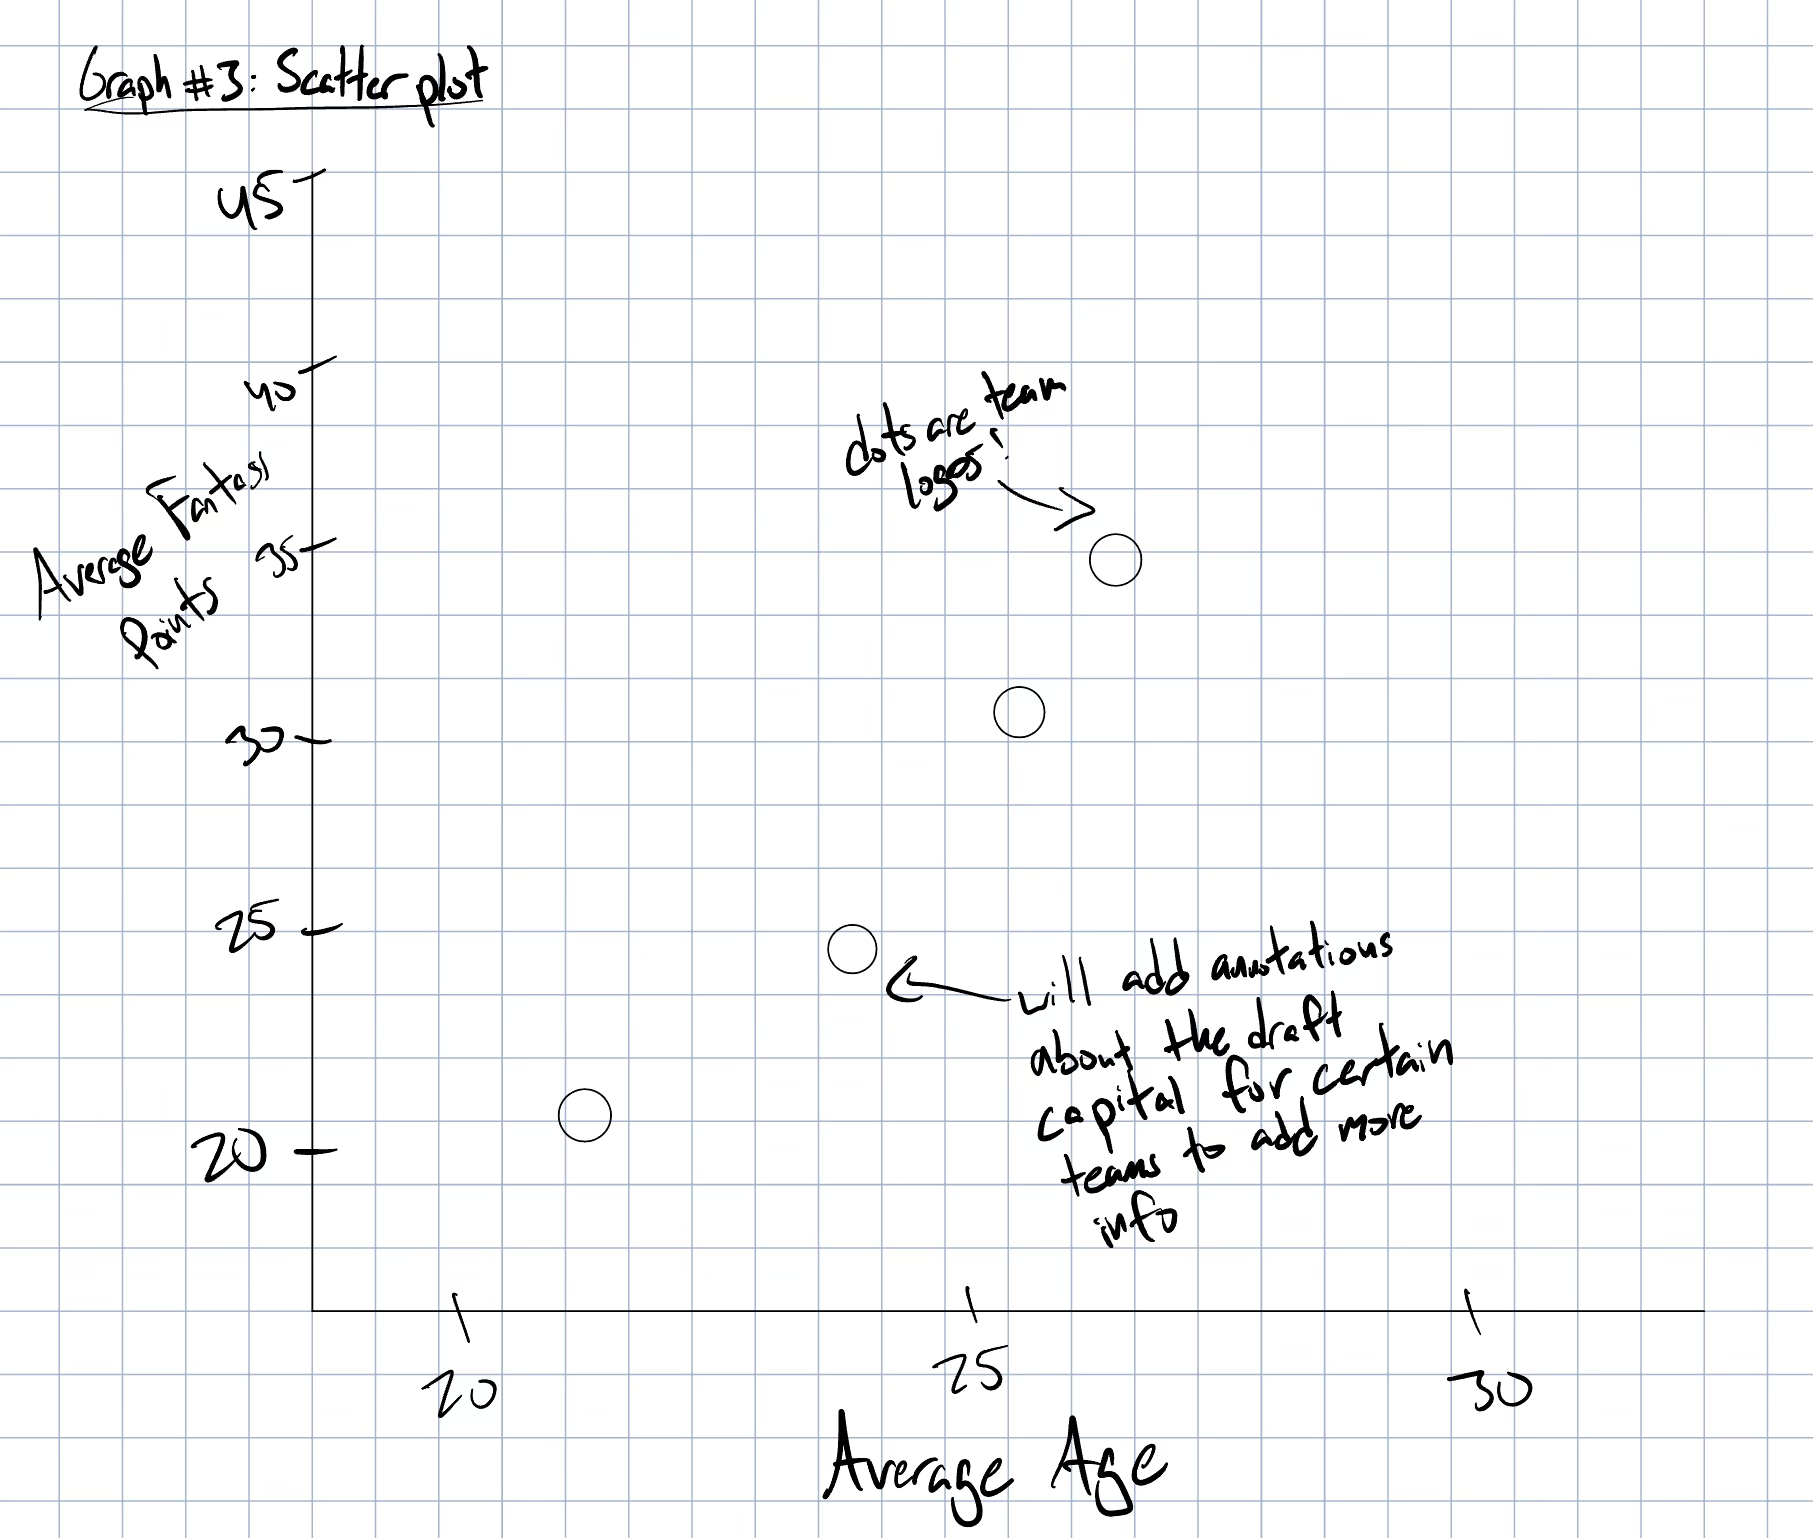 Graph #3: Scatter plot
45
40
35
30
25
20
Average Fantasy
Points
dots are team
logos!
will add annotations
about the draft
capital for certain
teams to add more
info
20
25
30
Average Age